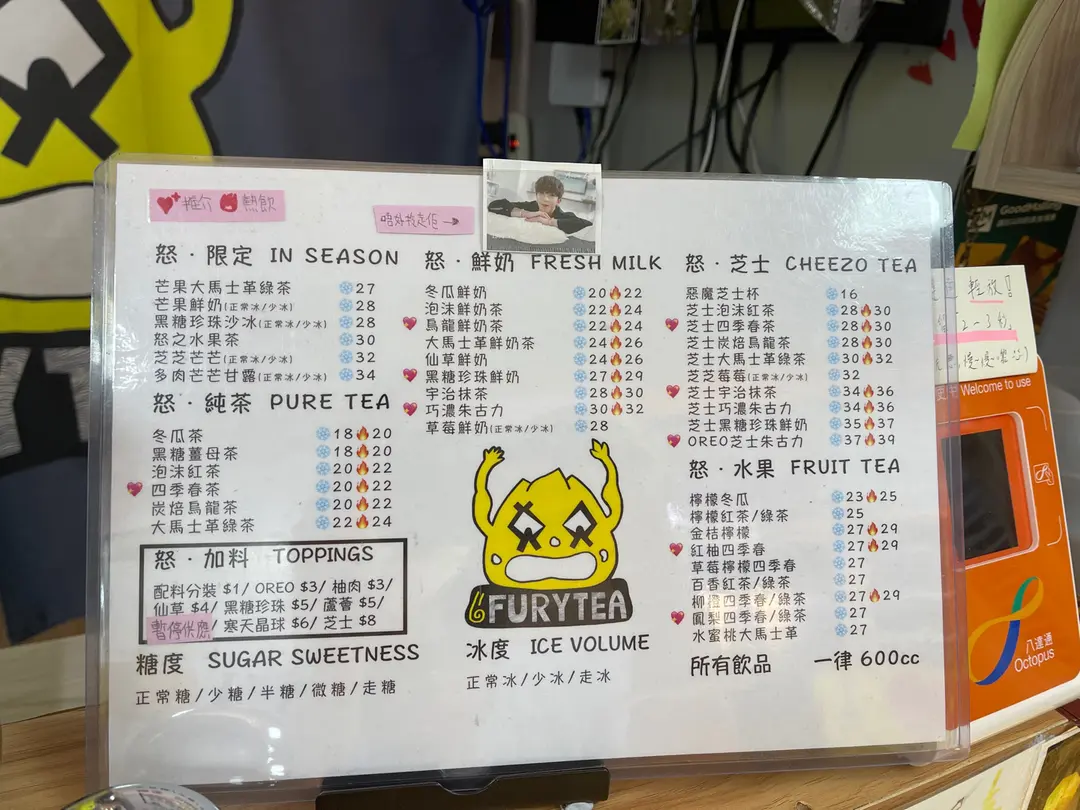 推介 熱飲
唔好拎走佢
怒・限定 IN SEASON
芒果大馬士革綠茶 27
芒果鮮奶(正常冰/少冰) 28
黑糖珍珠沙冰(正常冰/少冰) 28
怒之水果茶 30
芝芝芒芒(正常冰/少冰) 32
多肉芒芒甘露(正常冰/少冰) 34
怒・純茶 PURE TEA
冬瓜茶 18 20
黑糖薑母茶 18 20
泡沫紅茶 20 22
四季春茶 20 22
炭焙烏龍茶 20 22
大馬士革綠茶 22 24
怒・加料 TOPPINGS
配料分裝 $1/ OREO $3/ 柚肉 $3/
仙草 $4/ 黑糖珍珠 $5/ 蘆薈 $5/
暫停供應 / 寒天晶球 $6/ 芝士 $8
糖度 SUGAR SWEETNESS
正常糖/少糖/半糖/微糖/走糖
怒・鮮奶 FRESH MILK
冬瓜鮮奶 20 22
泡沫鮮奶茶 22 24
烏龍鮮奶茶 22 24
大馬士革鮮奶茶 24 26
仙草鮮奶 24 26
黑糖珍珠鮮奶 27 29
宇治抹茶 28 30
巧濃朱古力 30 32
草莓鮮奶(正常冰/少冰) 28
FURYTEA
冰度 ICE VOLUME
正常冰/少冰/走冰
怒・芝士 CHEEZO TEA
惡魔芝士杯 16
芝士泡沫紅茶 28 30
芝士四季春茶 28 30
芝士炭焙烏龍茶 28 30
芝士大馬士革綠茶 30 32
芝芝莓莓(正常冰/少冰) 32
芝士宇治抹茶 34 36
芝士巧濃朱古力 34 36
芝士黑糖珍珠鮮奶 35 37
OREO芝士朱古力 37 39
怒・水果 FRUIT TEA
檸檬冬瓜 23 25
檸檬紅茶/綠茶 25
金桔檸檬 27 29
紅柚四季春 27 29
草莓檸檬四季春 27
百香紅茶/綠茶 27
柳橙四季春/綠茶 27 29
鳳梨四季春/綠茶 27
水蜜桃大馬士革 27
所有飲品 一律 600cc
輕放!
Welcome to use
八達通
Octopus